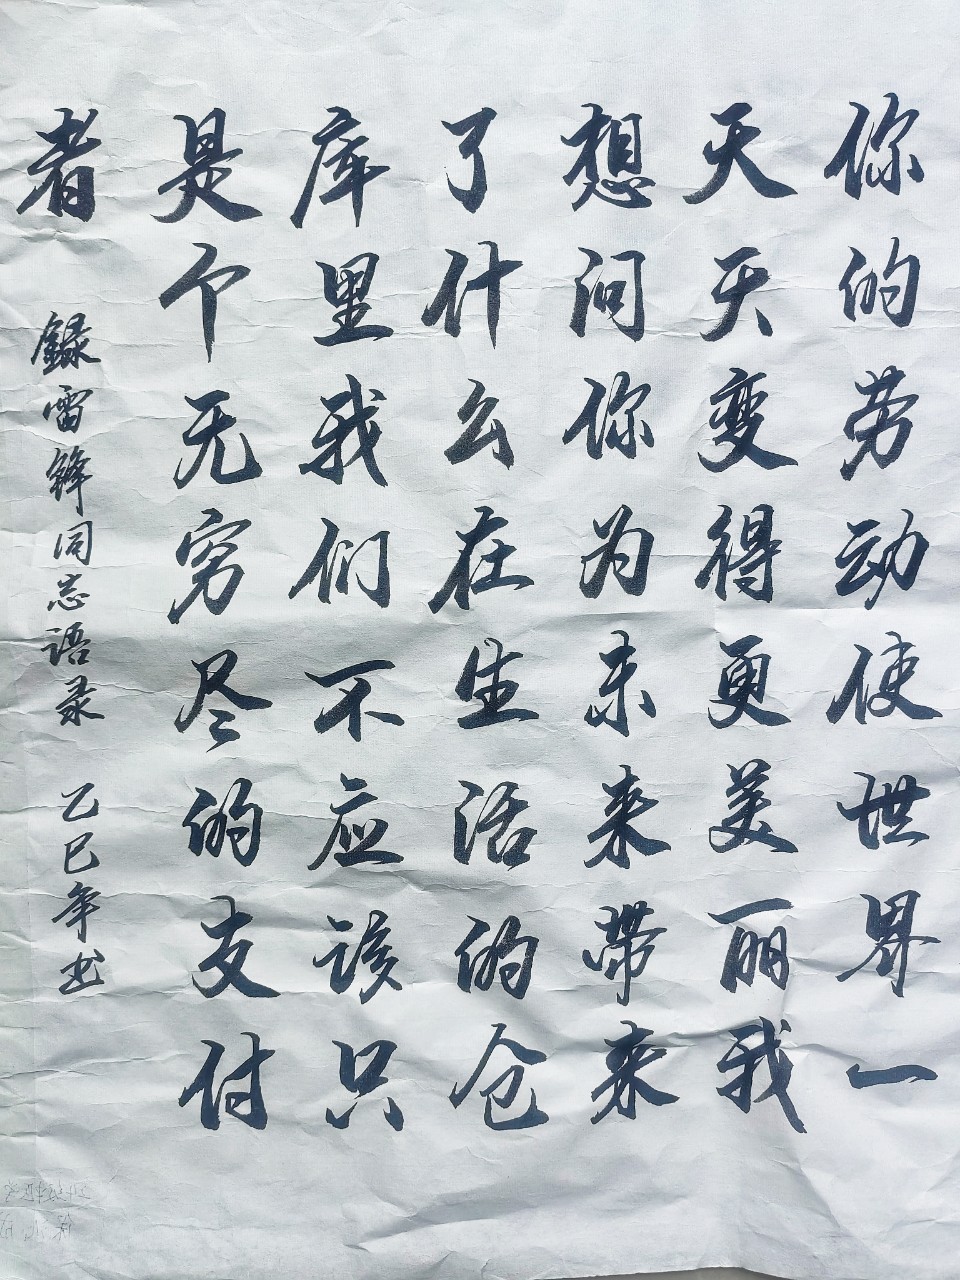 你的劳动使世界一
天天变得更美丽我
想问你为未来带来
了什么在生活的仓
库里我们不应该只
是个无穷尽的支付
者
録雷锋同志语录 乙巳年书